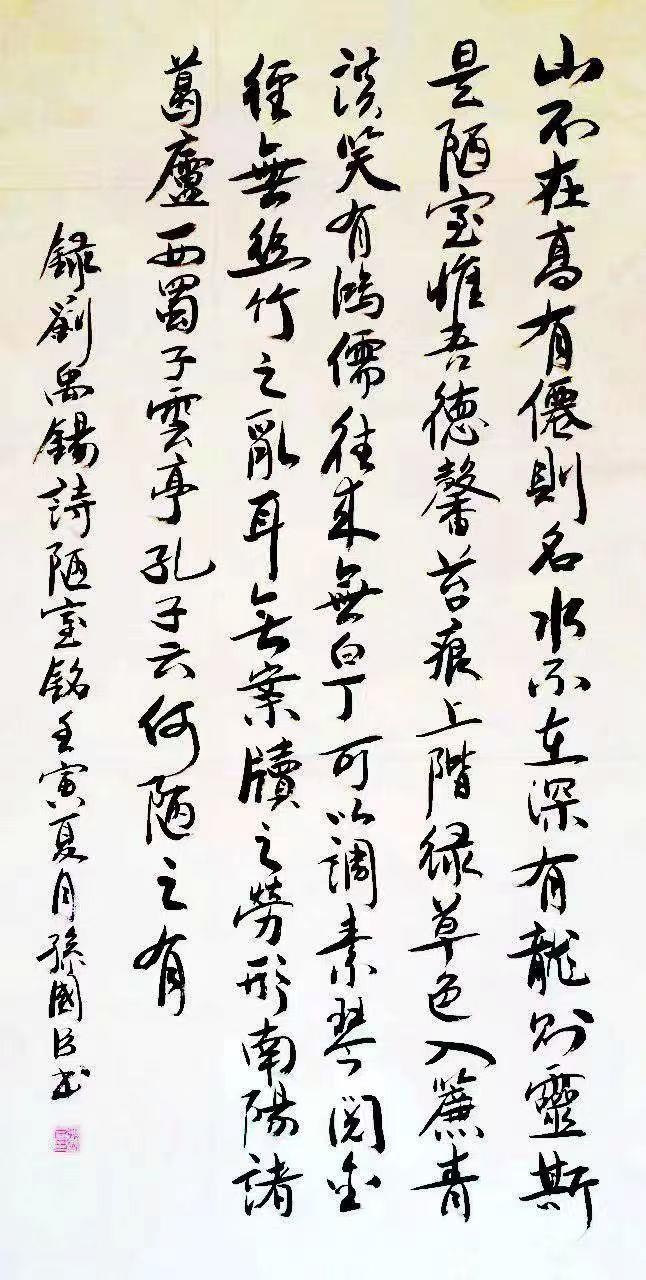 山不在高有僊則名水不在深有龍則靈斯
是陋室惟吾德馨苔痕上階緑草色入簾青
談笑有鴻儒往来無白丁可以調素琴閲金
經無絲竹之亂耳無案牘之勞形南陽諸
葛廬西蜀子雲亭孔子云何陋之有
録劉禹錫詩陋室銘壬寅夏月孫國臣書